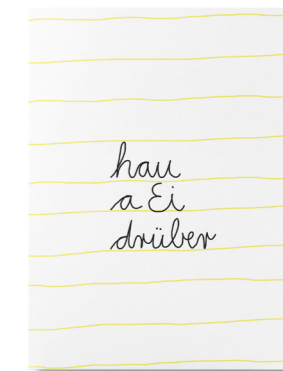 hau
a Ei
drüber